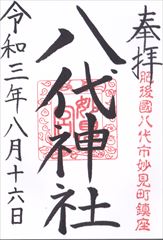 奉拝
肥後國八代市妙見町鎮座
八代神社
令和三年八月十六日